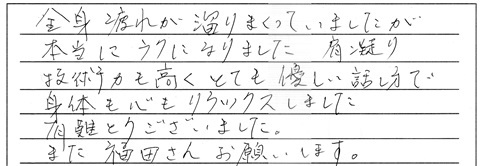 全身疲れが溜りまくっていましたが
本当にラクになりました 肩凝り
技術力も高くとても優しい話し方で
身体も心もリラックスしました
有難とうございました。
また福田さんお願いします。